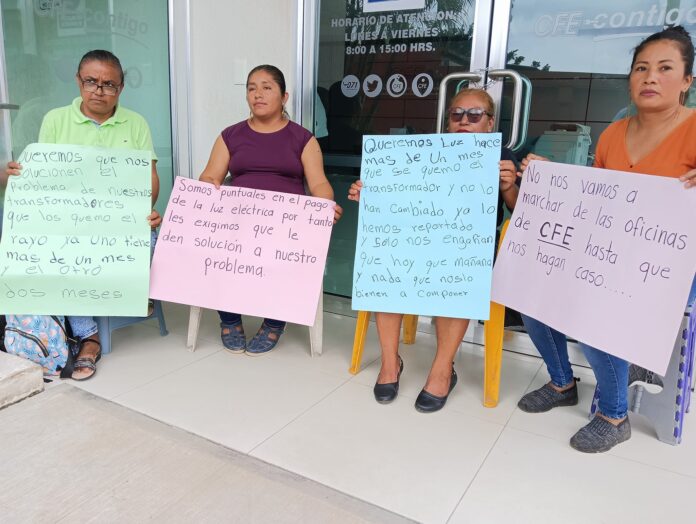 CFE contigo
HORARIO DE ATENCIÓN
LUNES A VIERNES
8:00 A 15:00 HRS.
071
CFE contigo
Queremos que nos
solucionen el
problema de nuestros
transformadores
que los quemo el
rayo ya uno tiene
mas de un mes
y el otro
dos meses
Somos puntuales en el pago
de la luz eléctrica por tanto
les exigimos que le
den solución a nuestro
problema.
Queremos Luz hace
mas de un mes
que se quemo el
transformador y no lo
han cambiado ya lo
hemos reportado
y solo nos engañan
que hoy que mañana
y nada noslo
bienen a componer
No nos vamos a
marchar de las oficinas
de CFE hasta que
nos hagan caso.....